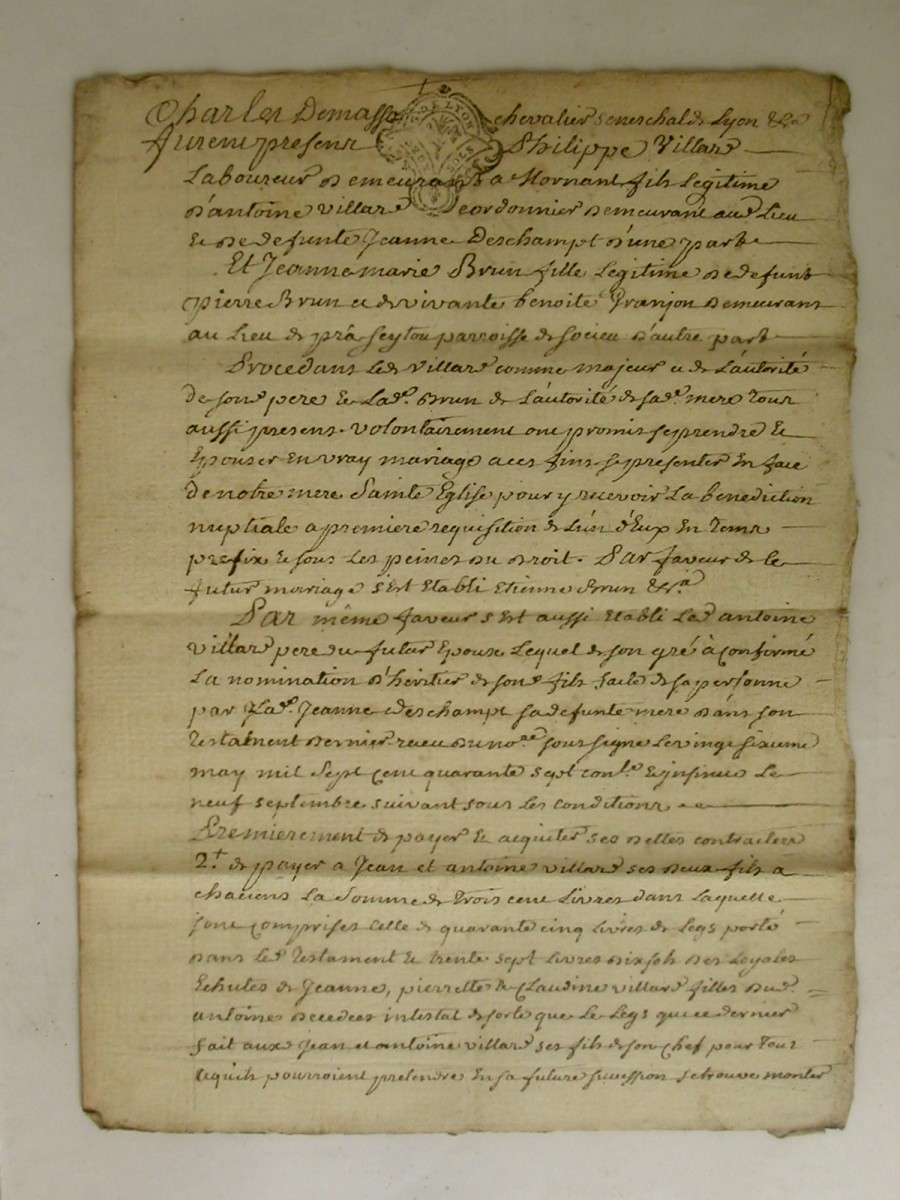 Charles Demasso chevalier seneschal de Lyon &c
furent presens Philippe Villard
Laboureur demeurant a Mornant fils Legitime
d'antoine villard cordonnier demeurant aud. Lieu
& de defunte Jeanne Deschampt d'une part
Et Jeanne marie Brun fille Legitime de defunt
pierre Brun et de vivante benoite Granjon demeurans
au Lieu de pra seytou parroisse de socieu d'autre part
Procedans Led. villard comme majeur et de L'autorité
de son d. pere & Lad. Brun de L'autorité de sad. mere tous
aussi presens. volontairement ont promis se prendre &
Epouser en vray mariage a ces fins se presenter En face
de notre mere Sainte Eglise pour y recevoir La benediction
nuptiale a premiere requisition de L'un d'Eux En tems
prefix & sous Les peines du droit. Par faveur de ce
futur mariage s'Est Etabli Etienne Brun &ca
Par même faveur s'Est aussi Etabli Led. antoine
villard pere du futur Epoux Lequel de son gré à Confirmé
La nomination d'héritier de son d. fils faite de sa personne
par Lad. Jeanne Deschampt sa defunte mere dans son
testament dernier recu du nore. soussigné Le vingt sixieme
may mil sept cent quarante sept conlé. & insinué Le
neuf septembre suivant sous les conditions
Premièrement de payer & acquiter ses dettes contractées
2.t de payer a Jean et antoine villard ses deux fils a
chacuns La somme de trois cent Livres dans Laquelle
sont comprises celle de quarante cinq Livres de Legs porté
dans Led. testament & trente sept Livres dix sols des Loyales
Echutes de Jeanne, pierrette & Claudine villard filles dud.
antoine decedées intestat de sorte que Le Legs que ce dernier
fait aux d. Jean et antoine villard ses fils de son Chef pour tous
ce qu'ils pourroient pretendre En sa future succession se trouve monter